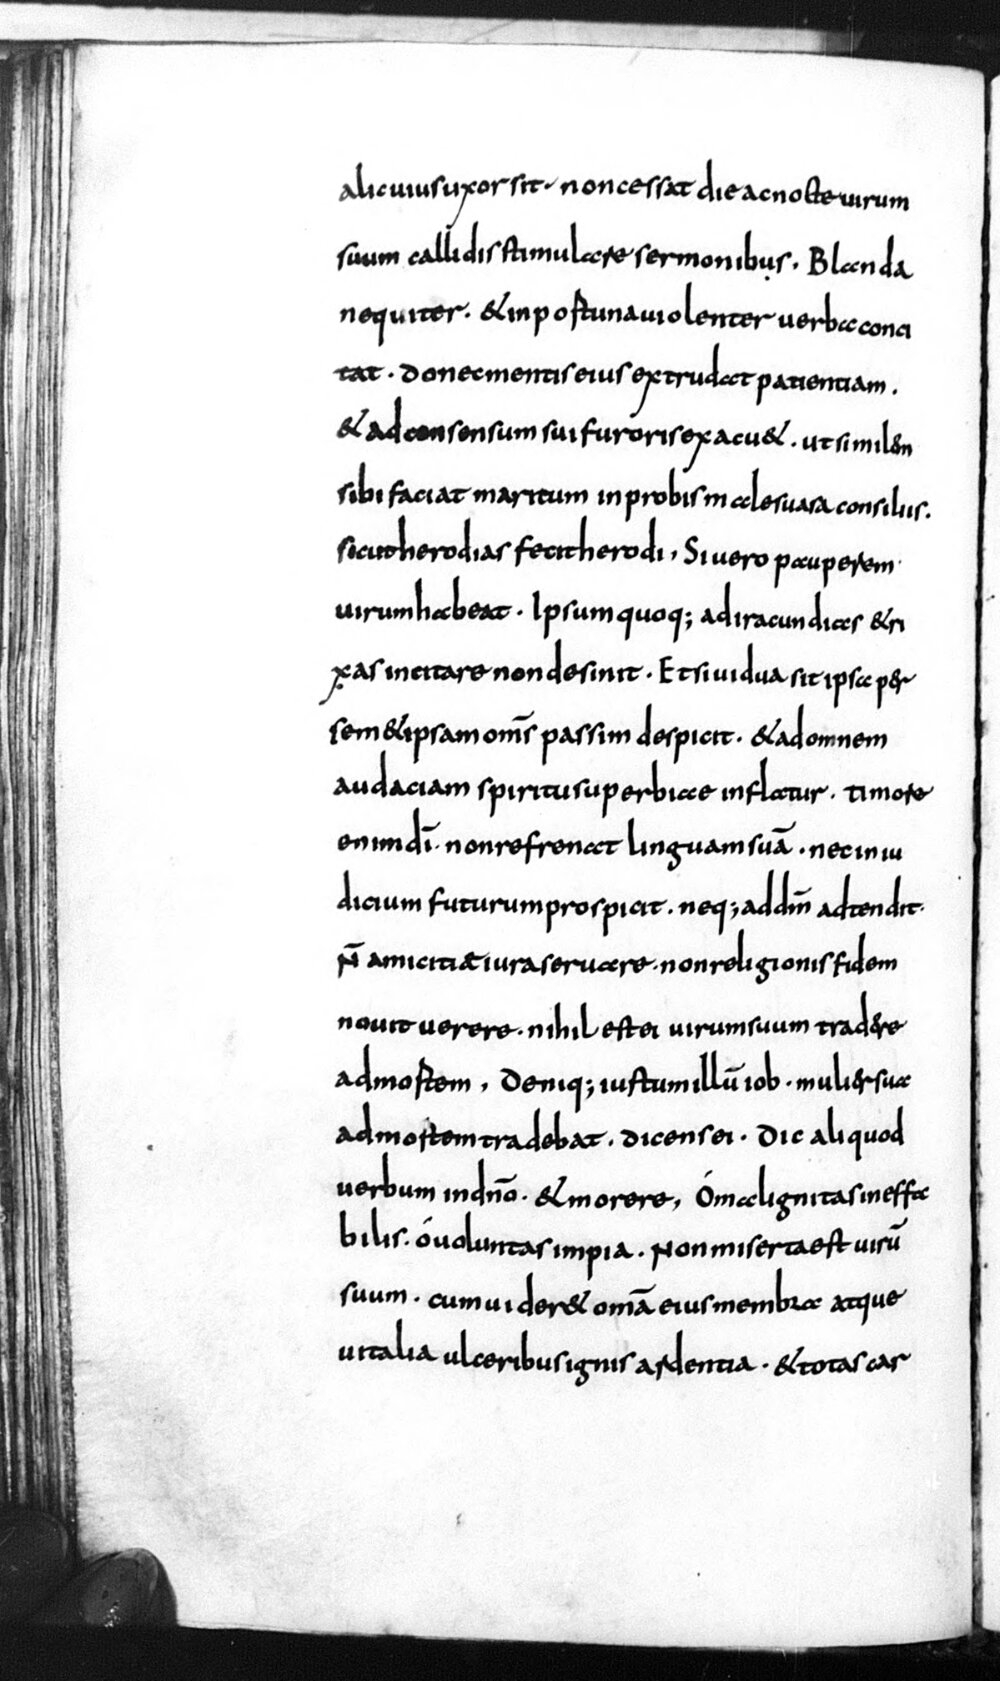 alicuius uxor sit · non cessat die ac nocte uirum
suum callidis stimulare sermonibus. Blanda
nequiter · & inportuna uiolenter uerba conci
tat · donec mentis eius extrudat patientiam.
& ad consensum sui furoris exacu& · ut simil&n
sibi faciat maritum inprobis malesuasa consiliis.
sicut herodias fecit herodi, Si uero pauperem
uirum habeat · Ipsum quoq; ad iracundias & ri
xas incitare non desinit · Et si uidua sit ipsa p&r
sem&ipsam om̅s passim despicit · & ad omnem
audaciam spiritu superbiae inflatur · timore
enim dī · non refrenat linguam suā · nec in iu
dicium futurum prospicit · neq; ad dm̅ adtendit·
N̅ amicitiae iura seruare · non religionis fidem
nouit uerere · nihil est ei uirum suum trad&re
ad mortem, Deniq; iustum illū iob · muli&r sua
ad mortem tradebat · dicens ei · Dic aliquod
uerbum in dn̅o · & morere, Ó malignitas ineffa
bilis · ó uoluntas impia · Non miserta est uirū
suum · cum uider& om̅a eius membra atque
uitalia ulceribus ignis ardentia · & totas car